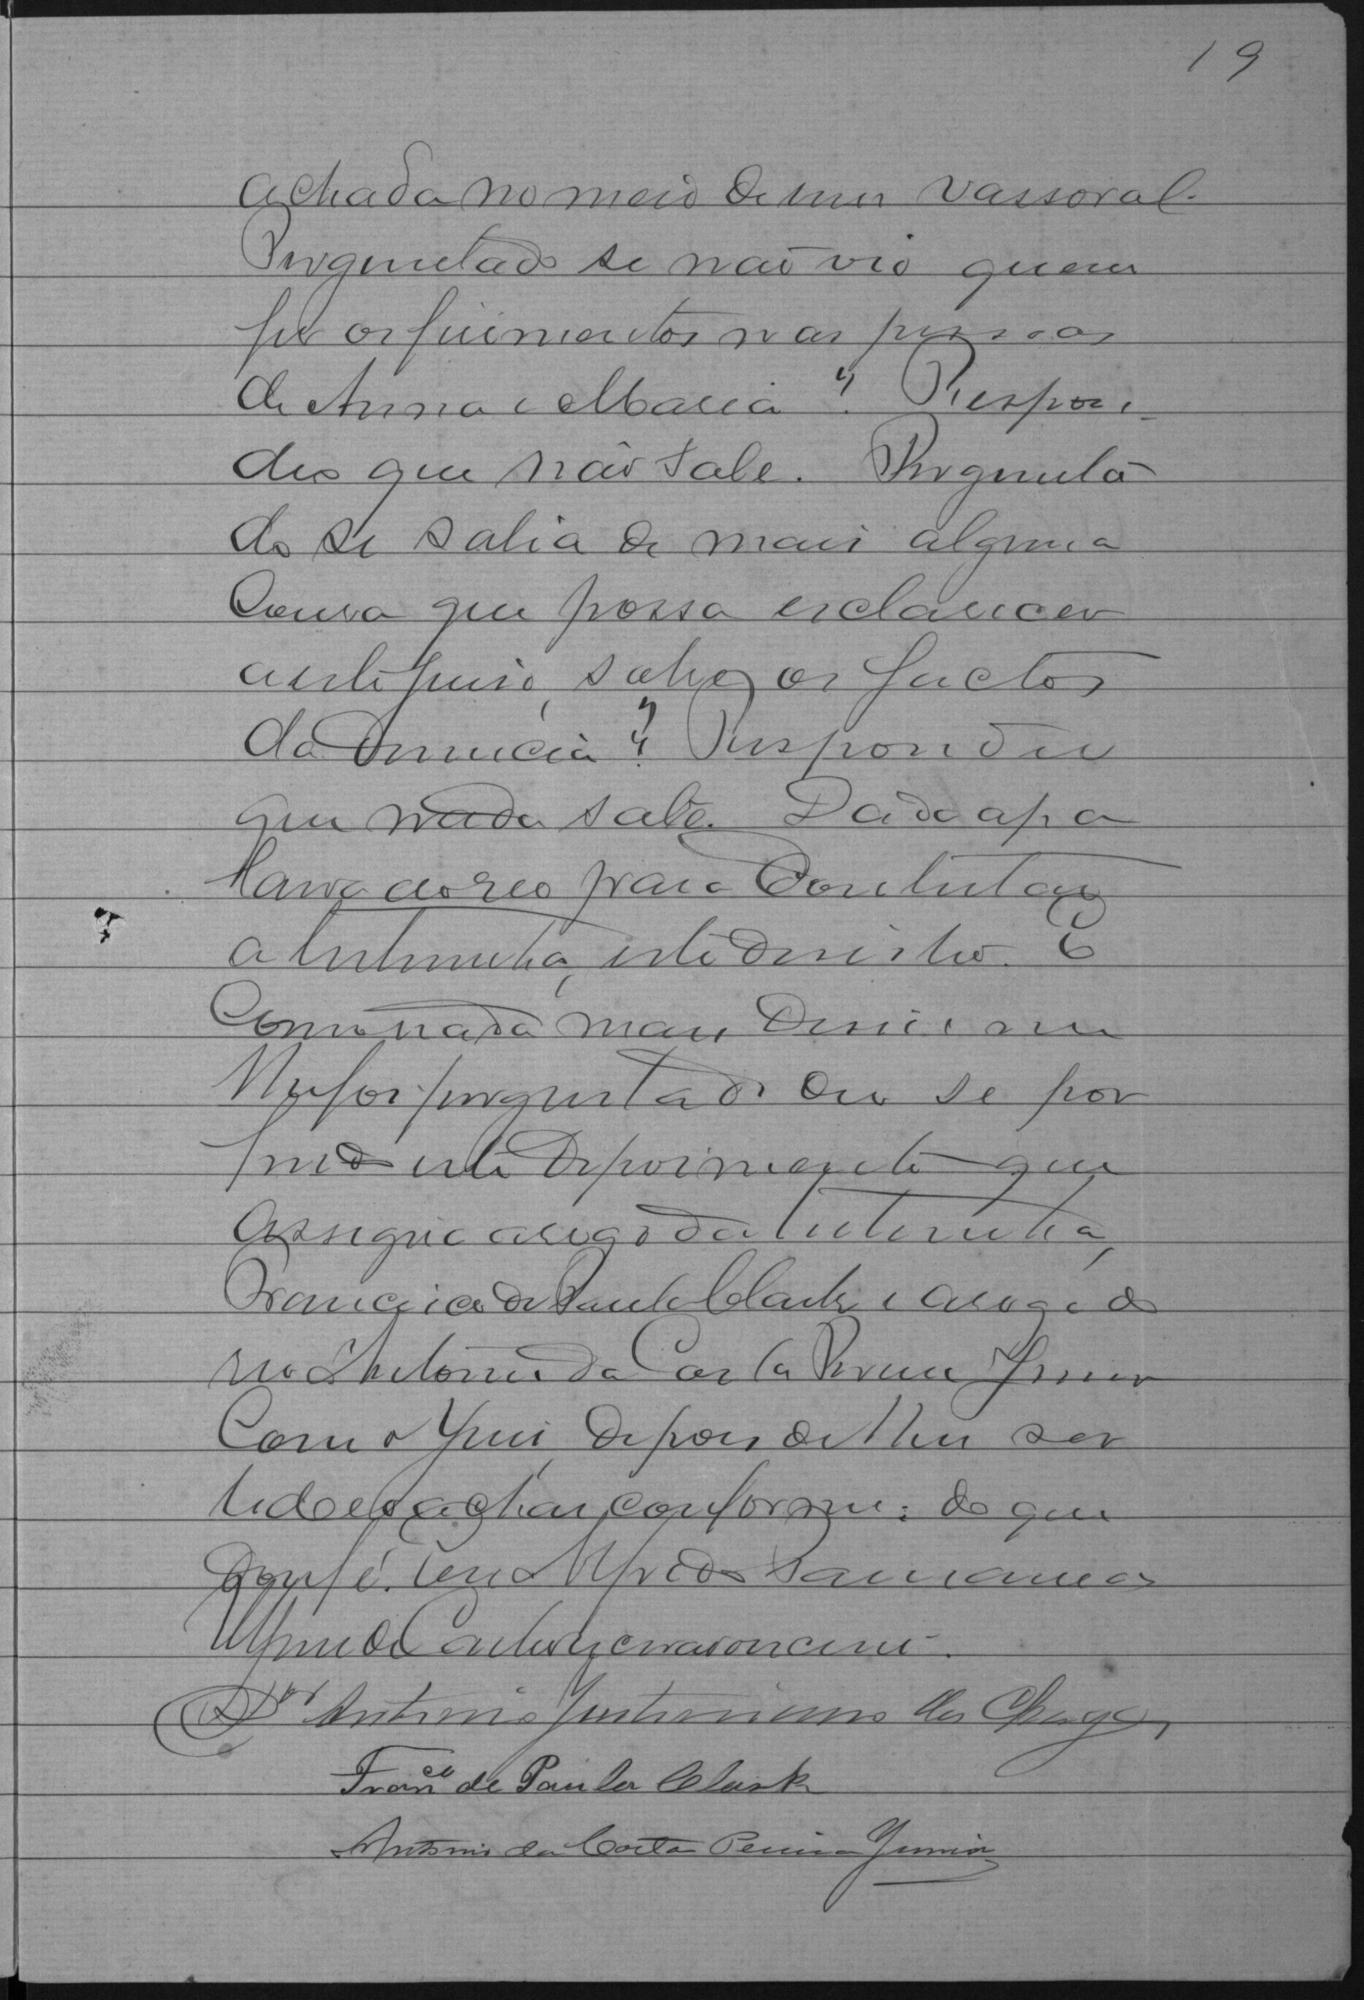 19
achada no meio de um vassoral.
Perguntado se não vio quem
fez os firimentos nas pessoas
de Anna e Maria? Respon-
deo que não sabe. Pergunta
do se sabia de mais alguma
Cousa que possa esclarecer
a este Juiso, sobre os factos
da denuncia? Respondeu
que nada sabe. Dada a pa
lavra ao reo para Contestar
a testemunha, este desistio. E
Como nada mais disse nem
lhe foi perguntado deu se por
findo este depoimento que
assigna a rogo da testemunha,
Francisco de Paula Clark e a rogo do
reo Antonio da Costa Pereira Junior
Com o Juis, depois de lhe ser
lido e o achar conforme: do que
dou fé. Eu Alfredo
escrevi.
Dor Antonio Justiniano das Chagas
Franco de Paula Clark
Antonio da Costa Pereira Junior